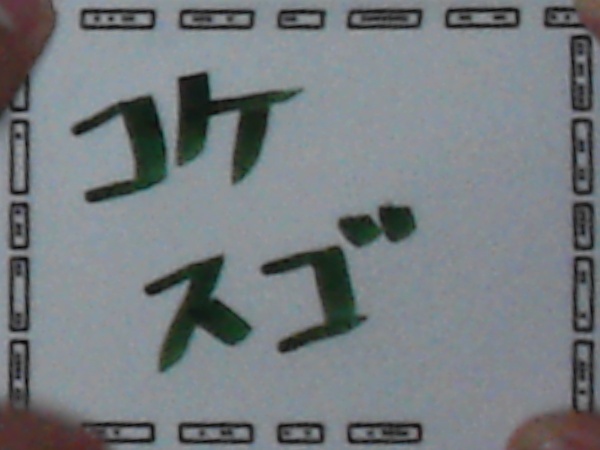 コケ
スゴ